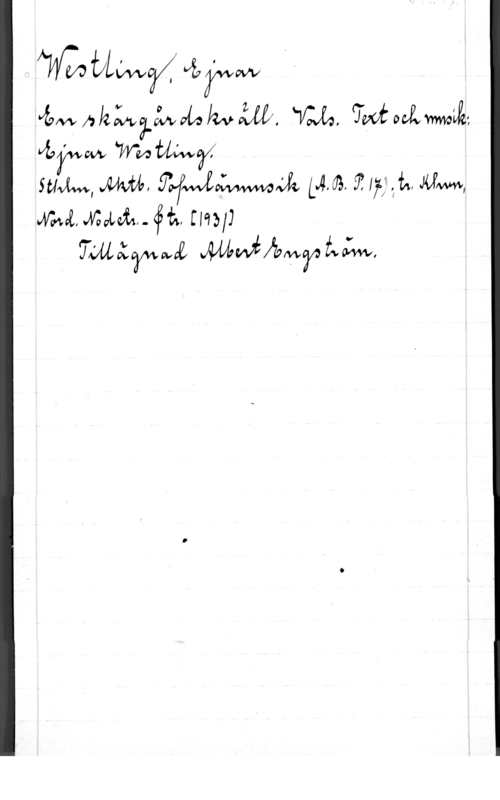 Westling, Ejnar
En skärgårdskväll. Vals. Text och musik:
Ejnar Westling.
Sthlm, Aktb. Populärmusik (A.B. P. 17); tr. Khvn,
Nord. Nodetr. - $ tr. [1931]
Tillägnad Albert Engström.